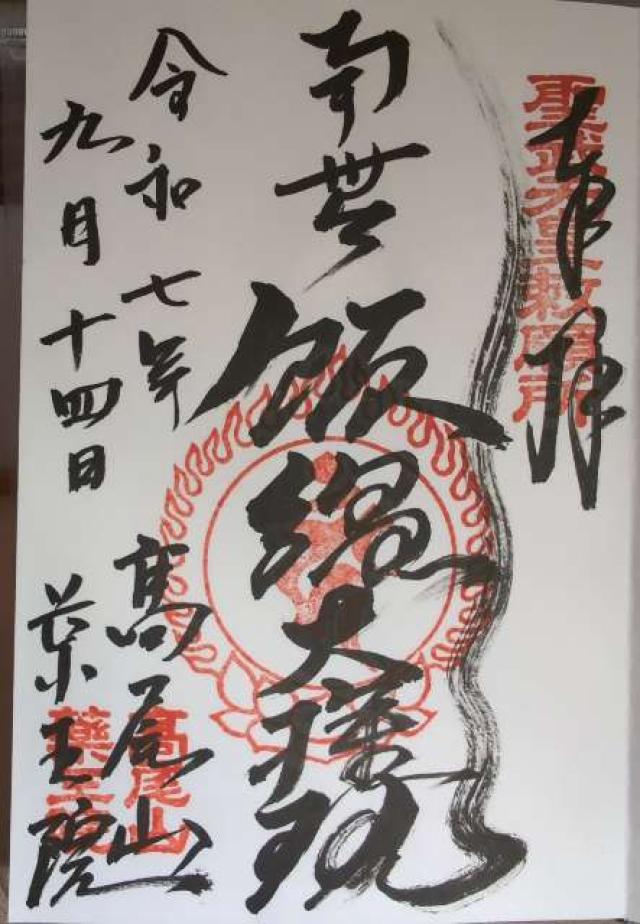 奉拝
聖武天皇勅願所
南無飯縄大権現
令和七年
九月十四日
高尾山
薬王院
高尾山
薬王院